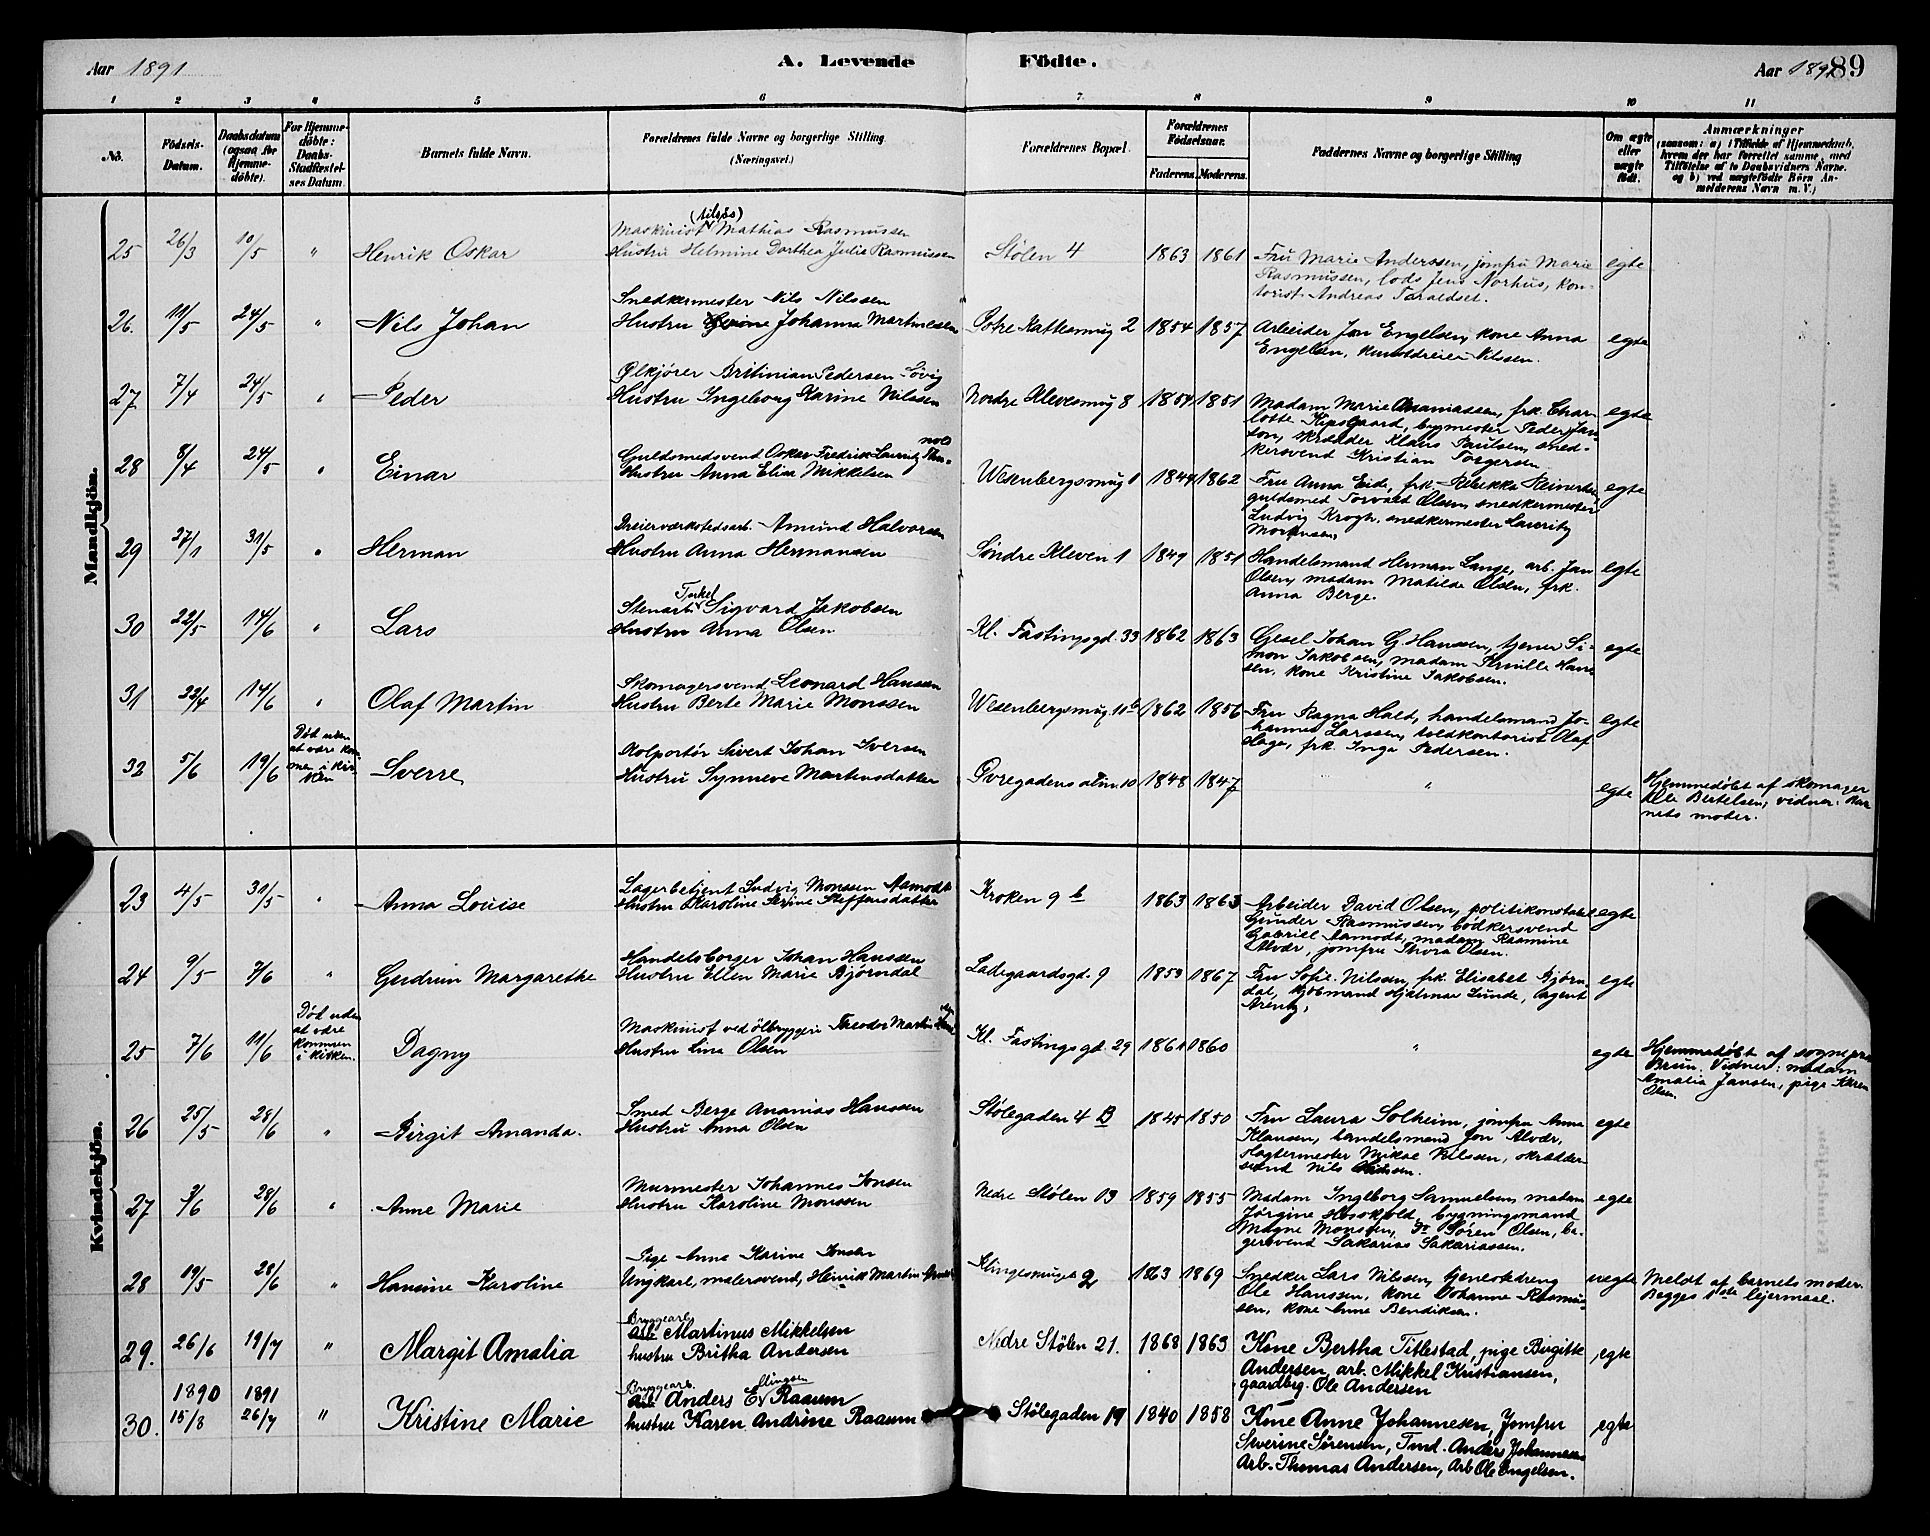 Aar 1891
A. Levende
Födte.
Aar 1891
89
1 2 3 4 5 6 7. 8 9 10 11
No.
Födsels-Datum.
Daabsdatum (ogsaa for Hjemme-döbte).
For Hjemme-döbte: Daabs-Stadfæstel-ses Datum.
Barnets fulde Navn.
Forældrenes fulde Navne og borgerlige Stilling (Næringsvei.)
Forældrenes Bopæl.
Forældrenes Födselsaar.
Faderens. Moderens.
Faddernes Navne og borgerlige Stilling
Om ægte eller uægte födt.
Anmærkninger
(saasom: a) i Tilfælde af Hjemmedaab, hvem der har forrettet samme, med Tilföielse af to Daabsvidners Navne. og b) ved uægtefödte Börn An-melderens Navn m. V.)
Mandkjön.
25 26/3 10/5 " Henrik Oskar
Maskinist Mathias Rasmussen
Hustru Helmine Dorthea Julie Rasmussen
Stølen 4 1863 1861
Fru Marie Anderssen, jomfru Marie
Rasmussen, lods Jens Norhus, kon-
torist Andreas Taraldset.
egte
26. 11/5 24/5 " Nils Johan
Snedkermester Nils Nilssen
Hustru Johanna Martinessen
Kattesmug 2 1854 1857
Arbeider Jon Engelsen, kone Anna
Engelsen, kunstdreier Nilssen.
egte
27 7/4 24/5 " Peder
Ølkjører Britinian Pedersen Løvig
Hustru Ingeborg Karine Nilssen
Nordre Klevesmug 8 1854 1851
Madam Marie Ananiassen, frk. Char-
lotte Kipsgaard, bymester Peder Jan-
son, skrædder Klaus Paulsen, sned-
kersvend Kristian Torgersen
egte
28 8/4 24/5 " Einar
Guldsmedsvend Oskar Fredrik Lauritz
Hustru Anna Elise Mikkelsen
Wesenbergsmug 1 1844 1862
Fru Anna Eide, frk. Rebekka Reinertsen
guldsmed Torvald Olsen, snedkermester
Ludvig Krogh, snedkermester Lauritz
Mortensen,
egte
29 27/1 31/5 " Herman
Dreierværkstedsarb. Amund Halvorsen
Hustru Anna Hermansen
Søndre Kleven 1 1849 1851
Handelsmand Herman Lange, arb. Jan
Olsen, madam Matilde Olsen, frk.
Anna Berge.
egte
30 22/5 14/6 " Lars
Stenarb. Torkel Sigvard Jakobsen
Hustru Anna Olsen
Kl. Fastingsgd. 33 1862 1863
Gesel Johan G. Hanssen, tjener Si-
mon Jakobsen, madam Hans-
sen, kone Kristine Jakobsen.
egte
31 22/4 14/6 " Olaf Martin
Skomagersvend Leonard Hanssen
Hustru Berte Marie Monssen
Wesenbergsmug. 11 b 1862 1856
Fru Ragna Hald, handelsmand Jo-
hannes Larssen, toldkontorist Olaf
Hage, frk. Inga Pedersen.
egte
32 5/6 19/6
Død uden
at være kom-
men i kir-
ken
Sverre
Kolportør Sivert Johan Iversen
Hustru Synneve Martinsdatter
Øvregadens alm. 10 1848 1847 "
egte
Hjemmedøbt af skomager
Ole Bertelsen, vidner: Bar-
nets moder.
Kvindekjön.
23 4/5 31/5 " Anna Louise
Lagerbetjent Ludvig Monssen Aamodt
Hustru Karoline Serine Steffensdatter
Kroken 9 b 1863 1863
Arbeider David Olsen, politikonstabel
Gunder Rasmussen, bødkersvend
Gabriel Aamodt, madam Rasmine
Alvær, jomfru Thora Olsen.
egte
24 9/5 7/6 " Gudrun Margarethe
Handelsborger Johan Hanssen
Hustru Ellen Marie Bjørndal
Ladegaardsgd. 9 1859 1867
Fru Sofie Nilssen, frk. Elisabet Bjørn-
dal, kjøbmand Hjalmar Lunde, agent
Arentz,
egte
25 7/6 11/6
Død uden
at være
kommen
i kirken.
Dagny
Maskinist ved ølbryggeri Theodor Martin
Hustru Lina Olsen
Kl. Fastingsgd. 29 1861 1860 "
egte
Hjemmedøbt af sognepr.
Brun. Vidner: madam
Amalia Jansen, pige Karen
Olsen.
26 25/5 28/6 " Birgit Amanda.
Smed Berge Ananias Hanssen
Hustru Anna Olsen
Stølegaden 4 B 1845 1850
Fru Laura Solheim, jomfru Anna
Klausen, handelsmand Jon Alvær,
slagtermester Mikae Nilssen, skrædder-
svend Nils
egte
27 3/6 28/6 " Anne Marie
Murmester Johannes Jonsen
Hustru Karoline Monssen
Nedre Stølen 13 1859 1855
Madam Ingeborg Samuelsen, madam
Jørgine bygningsmand
Magne Monssen, do Søren Olsen, ba-
gersvend Sakarias Sakariassen.
egte
28 19/5 28/6 " Hansine Karoline
Pige Anna Karine Jonsen
Ungkarl, malersvend, Henrik Martin
Klingesmuget 2 1863 1869
Snedker Lars Nilssen, tjenestedreng
Ole Hanssen, kone Johanne Rasmus-
sen, kone Anne Bendiksen.
uegte
Meldt af barnets moder.
Begges 1ste leiermaal.
29. 26/6 19/7 " Margit Amalia
Bryggearb.
Martinus Mikkelsen
hustru Britha Andersen
Nedre Stølen 21. 1868 1863
Kone Bertha Titlestad, pige Birgitte
Andersen, arb. Mikkel Kristiansen,
gaardbrg. Ole Andersen
egte
1890 1891
30. 15/8 26/7 " Kristine Marie
Bryggearb.
Anders Ellingsen Raaum
hustru Karen Andrine Raaum
Stølegaden 19 1840 1858
Kone Anne Johannesen, Jomfru
Severine Sørensen, Tmd. Anders Johannesen
Arb. Thomas Andersen, Arb Ole Engelsen.
egte